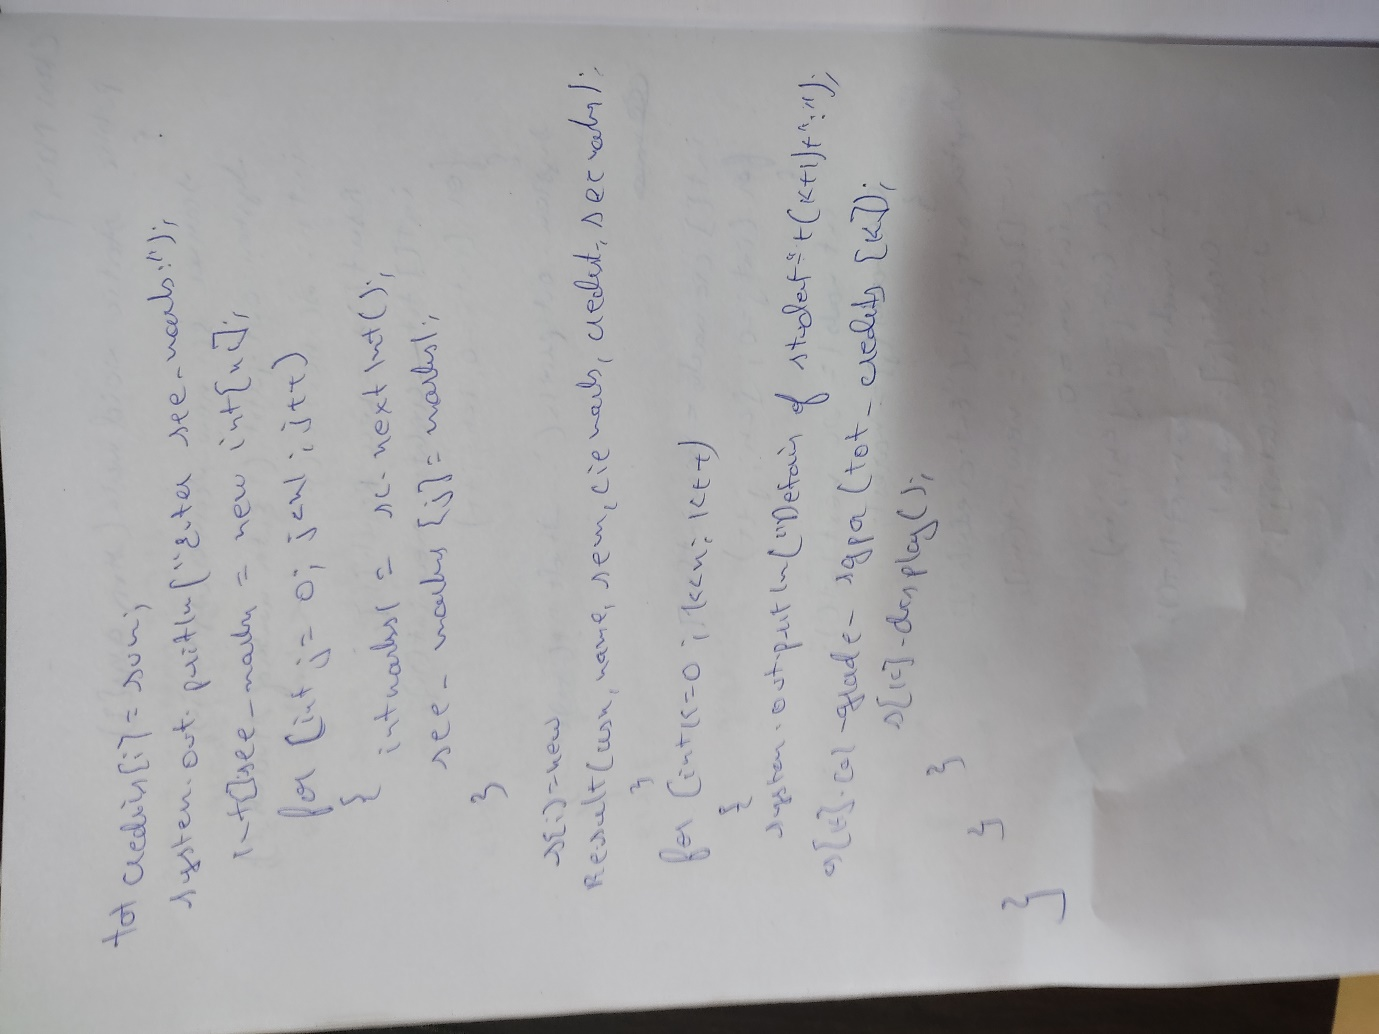 tot credits[i] = sum;
system.out.println("Enter see-marks:");
int[]see-marks = new int[n1];
for (int j = 0; j<n1; j++)
{
int marks1 = sc.nextInt();
see-marks[j] = marks1;
}
s[i]=new
Result(usn, name, sem, cie marks, credit, see marks);
}
for (int k=0; k<n; k++)
{
system.out.println("Details of student"+(k+1)+":");
s[k].cal-grade-sgpa(tot-credits[k]);
s[k].display();
}
}
}